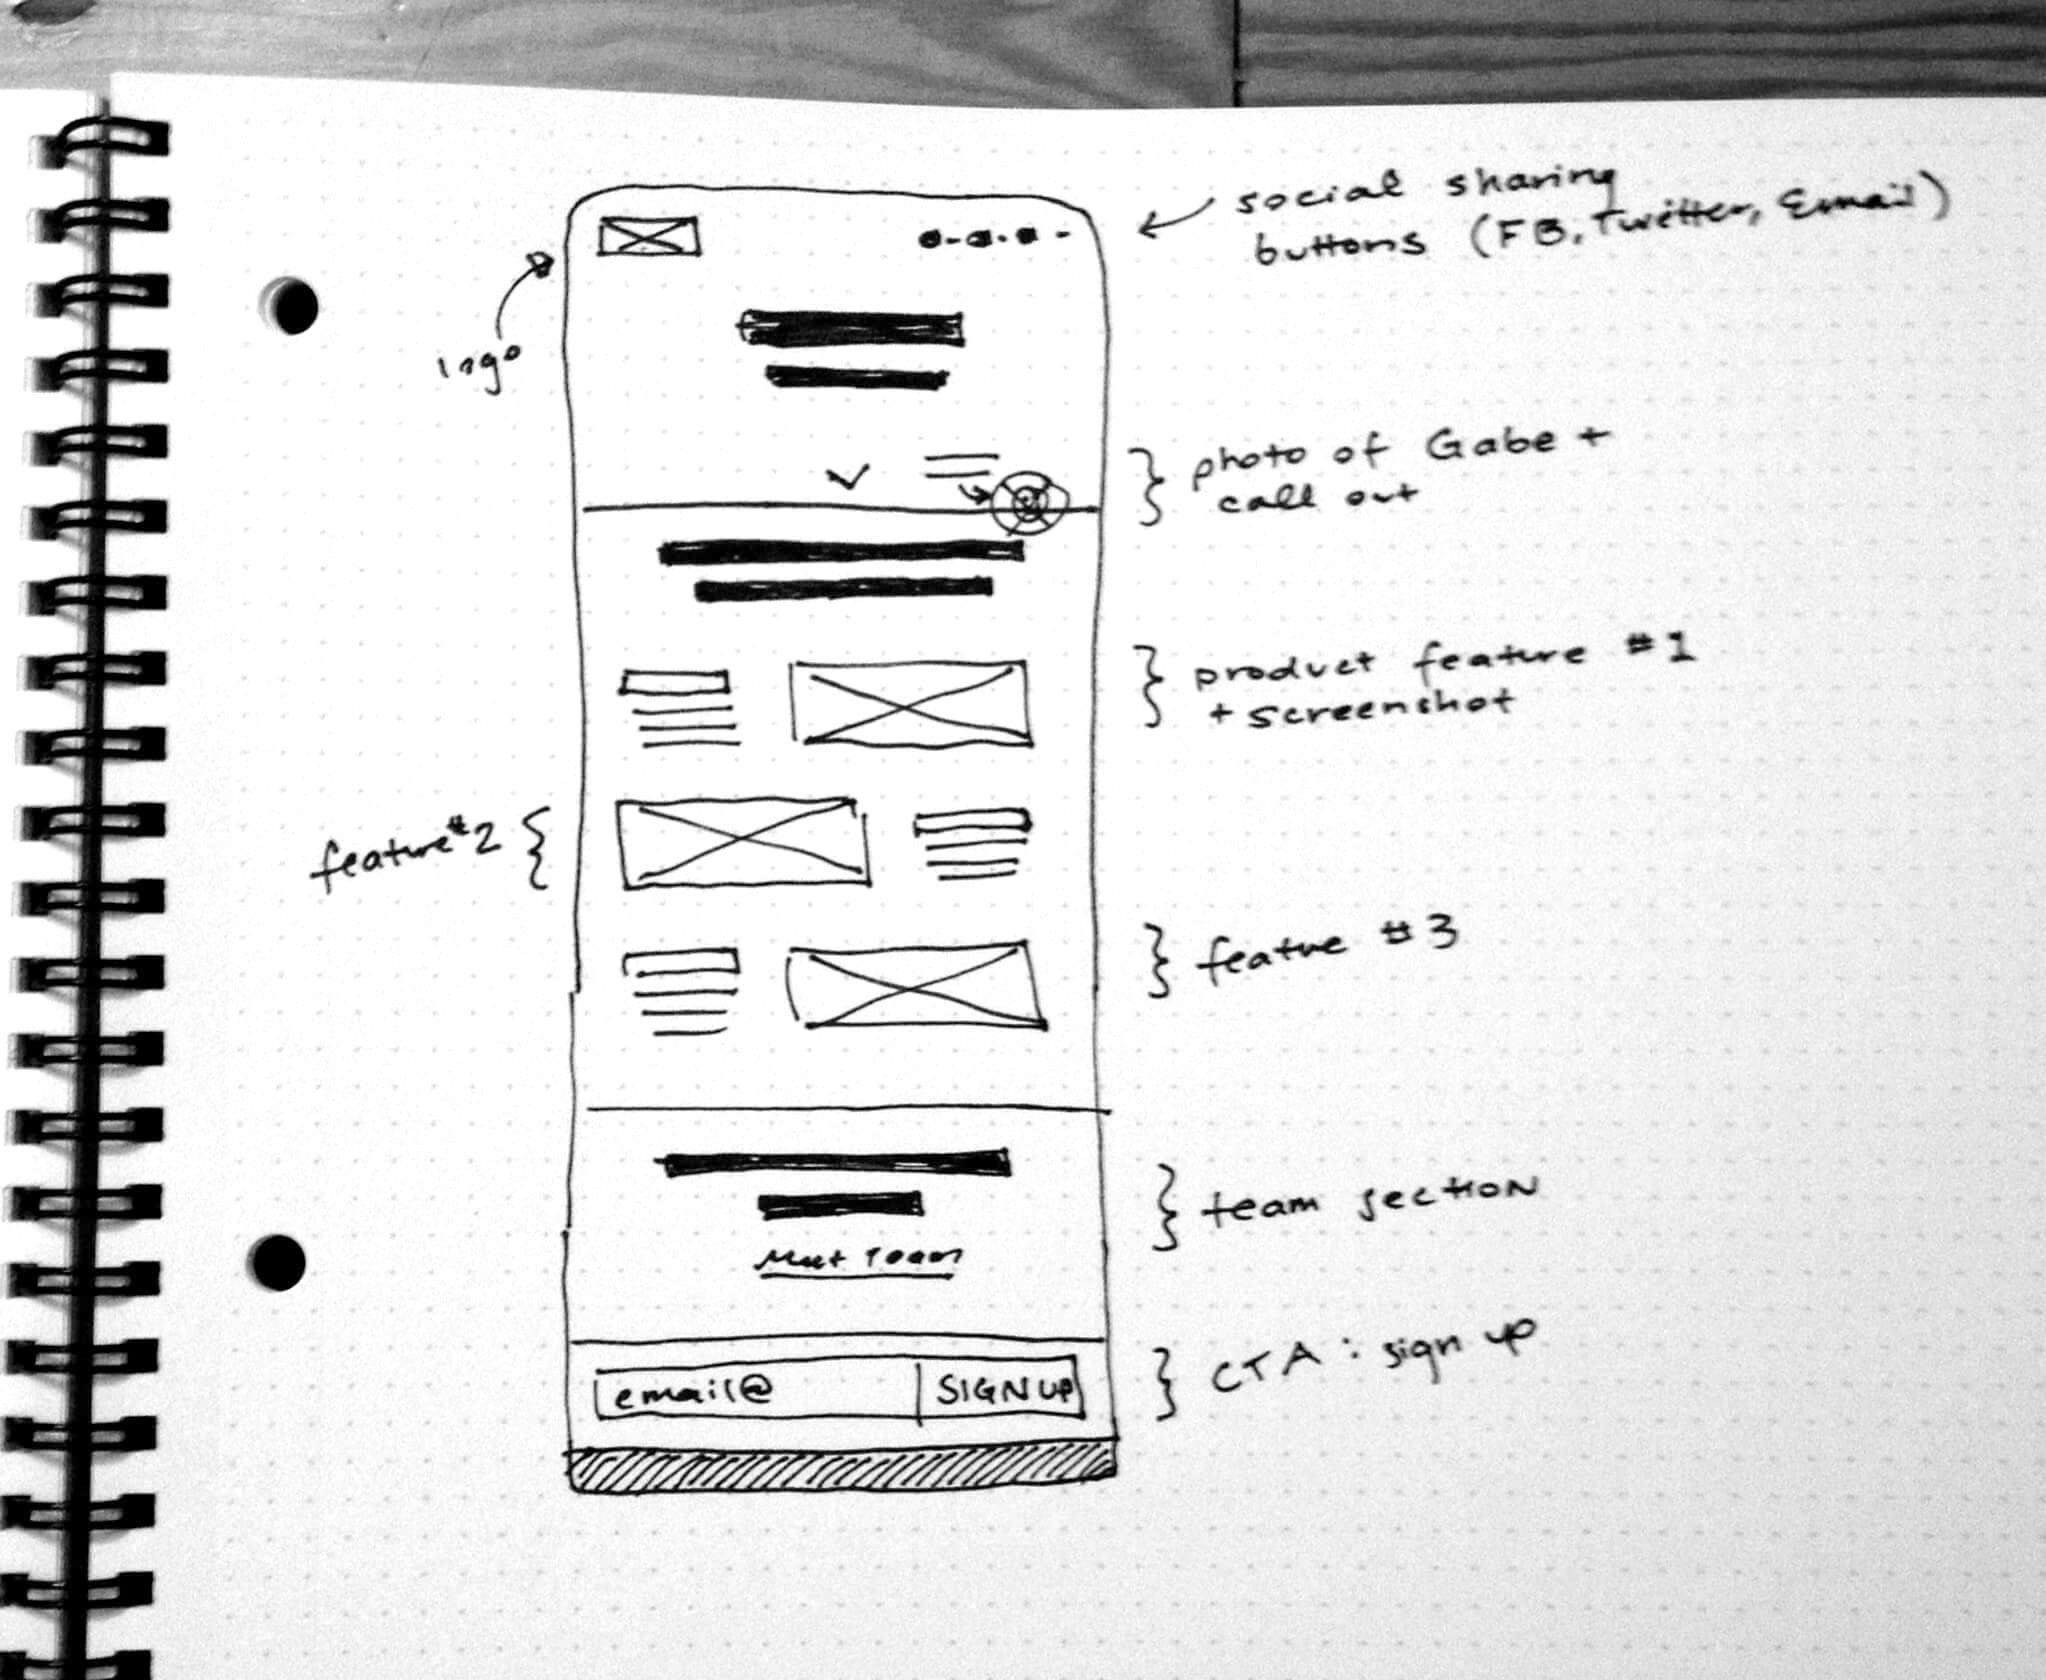 social sharing
buttons (FB, Twitter, Email)
logo
photo of Gabe +
call out
product feature #1
+ screenshot
feature #2
featue #3
team section
Meet Team
CTA: sign up
email@
SIGN UP